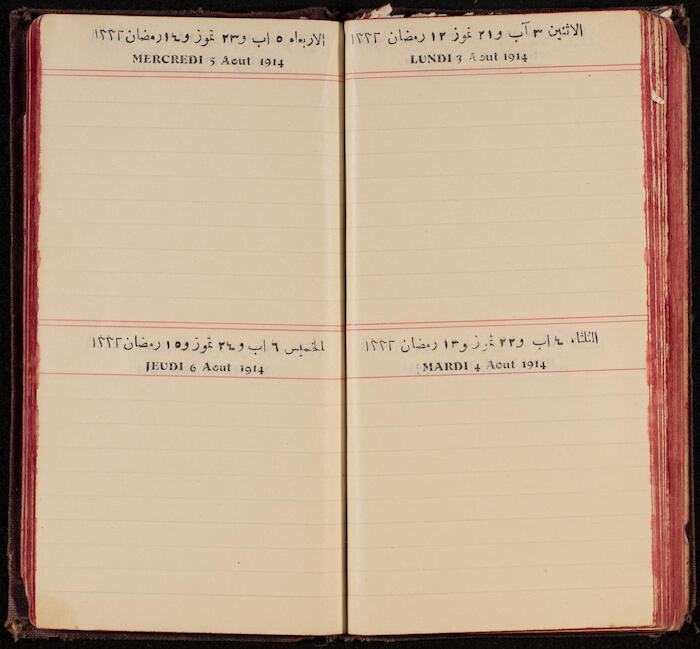 الاثنين ٣ آب و٢١ تموز ١٢ رمضان ١٣٣٢
LUNDI 3 Aout 1914
الثلثاء ٤ اب و٢٢ تموز و١٣ رمضان ١٣٣٢
MARDI 4 Aout 1914
الاربعاء ٥ اب و٢٣ تموز و١٤ رمضان ١٣٣٢
MERCREDI 5 Aout 1914
الخميس ٦ اب و٢٤ تموز و١٥ رمضان ١٣٣٢
JEUDI 6 Aout 1914